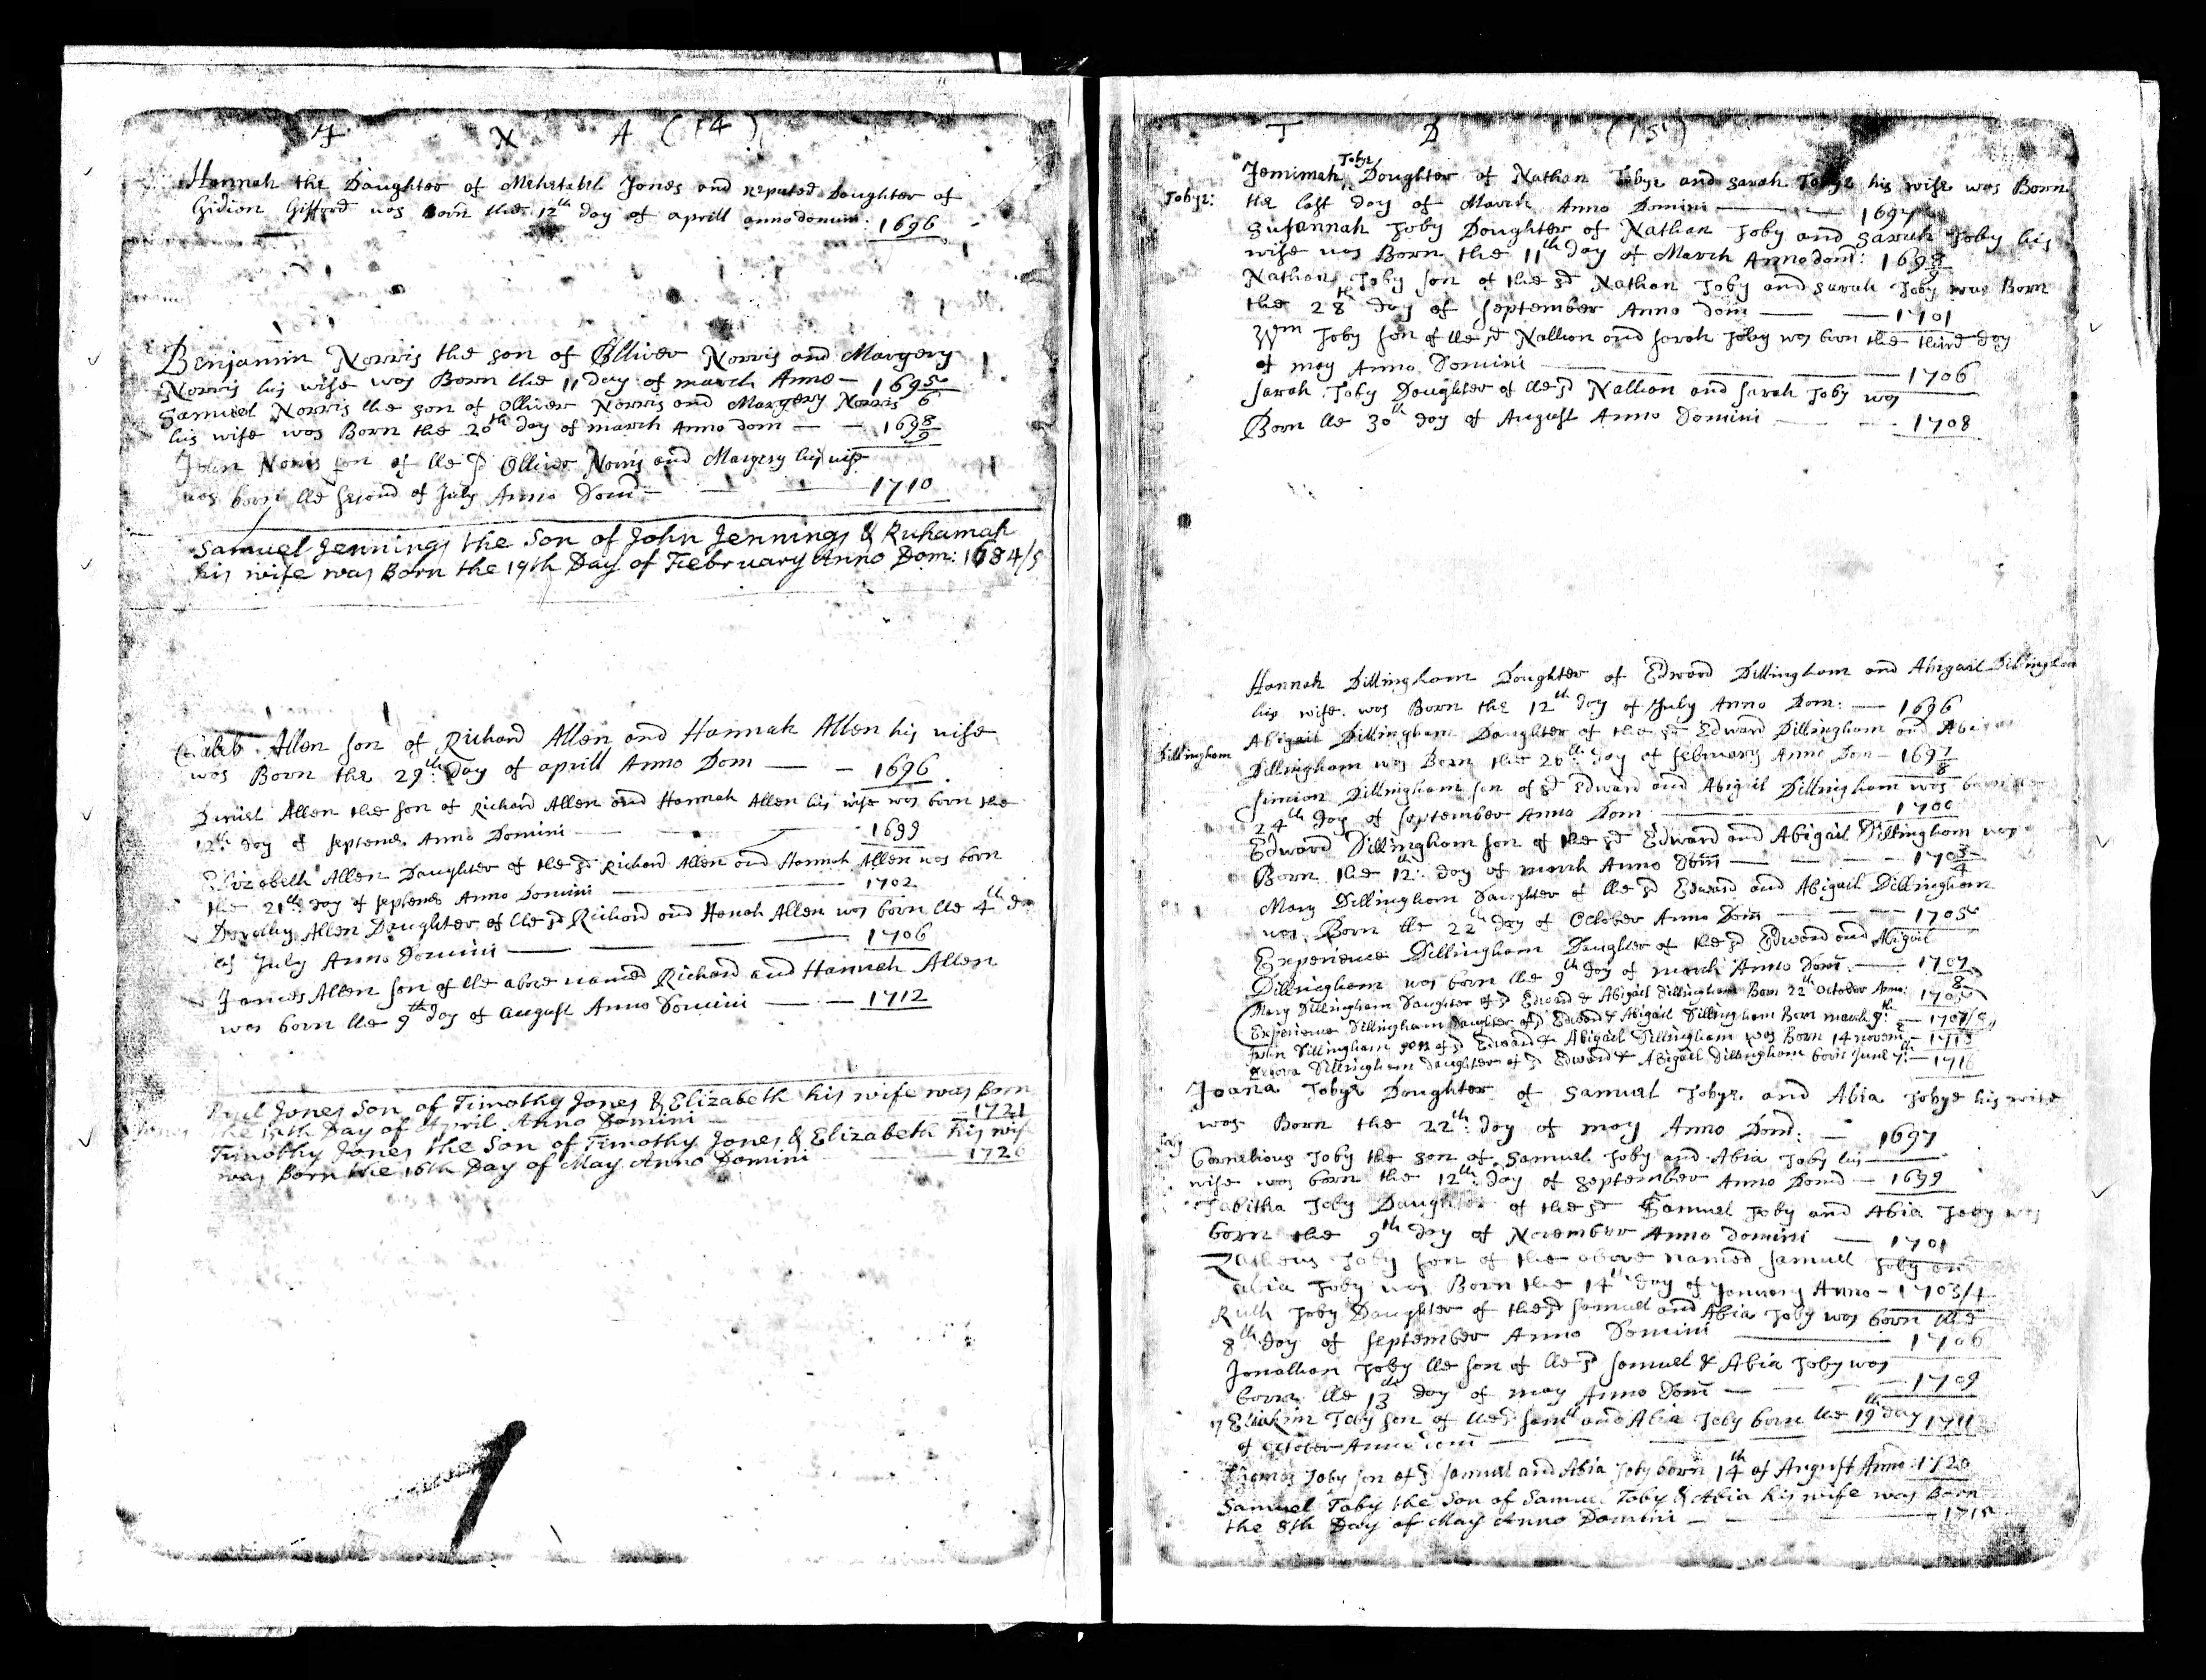 J N A (14)
Hannah the Daughter of Mehetabel Jones and reputed Daughter of
Gidion Gifford was Born the 12th day of aprill anno domini: 1696
Benjamin Norris the son of Olliver Norris and Margery
Norris his wife was Born the 11 day of march Anno - 1695/6
Samuel Norris the son of Olliver Norris and Margery Norris
his wife was Born the 20th day of march Anno dom - - 1698/9
John Norris son of the sd Olliver Norris and Margery his wife
was born the second of July Anno Dom - 1710
Samuel Jennings the Son of John Jennings & Ruhamah
his wife was Born the 19th Day of February Anno Dom: 1684/5
Caleb Allen son of Richard Allen and Hannah Allen his wife
was Born the 29th Day of aprill Anno Dom - - 1696
Daniel Allen the son of Richard Allen and Hannah Allen his wife was born the
12th day of Septembr Anno Domini - 1699
Elizabeth Allen Daughter of the sd Richard Allen and Hannah Allen was born
the 21th day of Septembr Anno Domini - 1702
Dorothy Allen Daughter of the sd Richard and Hanah Allen was born the 4th da
of July Anno Domini - 1706
James Allen son of the above named Richard and Hannah Allen
was born the 9th day of August Anno Domini - - 1712
Jones Son of Timothy Jones & Elizabeth his wife was Born
the Day of April Anno Domini - 1721
Timothy Jones the Son of Timothy Jones & Elizabeth his wif
was Born the 16th Day of May Anno Domini 172
T D (15)
Toby
Jemimah Doughter of Nathan Tobye and Sarah Tobye his wife was Born
Tobye:
the last day of March Anno Domini - 1697
Susannah Toby Doughter of Nathan Toby and Sarah Toby his
wife was Born the 11th day of March Anno dom: 1698/9
Nathan Toby son of the sd Nathan Toby and Sarah Toby was Born
the 28th day of September Anno Dom - 1701
Wm Toby son of the sd Nathan and Sarah Toby was born the third day
of may Anno Domini - 1706
Sarah Toby Doughter of the sd Nathan and Sarah Toby was
Born the 30th day of August Anno Domini - 1708
Hannah Dillingham Doughter of Edward Dillingham and Abigail Dillingham
his wife was Born the 12th day of July Anno Dom: - 1696
Abigail Dillingham Daughter of the sd Edward Dillingham and Abigail
Dillingham
Dillingham was Born the 20th day of february Anno Dom - 1697/8
Simion Dillingham son of sd Edward and Abigail Dillingham was born the
24th day of September Anno Dom - 1700
Edward Dillingham son of the sd Edward and Abigail Dillingham was
Born the 12th day of march Anno Dom - 1703/4
Mary Dillingham Daughter of the sd Edward and Abigail Dillingham
was Born the 22th day of October Anno Dom - 1705
Experience Dillingham Daughter of the sd Edward and Abigail
Dillingham was born the 9th day of march Anno Dom - 1707/8
Mary Dillingham Daughter of sd Edward & Abigail Dillingham Born 22th October Anno: 1705
Experience Dillingham Daughter of sd Edward & Abigail Dillingham Born march 9th: - 1707/8
John Dillingham son of sd Edward & Abigail Dillingham was Born 14 novem - 1713
Dillingham Daughter of sd Edward & Abigail Dillingham born June 7th - 1716
Joana Tobye Doughter of Samuel Tobye and Abia Tobye his wife
was Born the 22th day of may Anno Dom: - 1697
Toby
Cornelious Toby the son of Samuel Toby and Abia Toby his
wife was born the 12th day of September Anno Domi - 1699
Tabitha Toby Daughter of the sd Samuel Toby and Abia Toby was
born the 9th day of November Anno domini - 1701
Zatheus Toby son of the above named Samuel Toby and
abia Toby was Born the 14th day of January Anno - 1703/4
Ruth Toby Daughter of the sd Samuel and Abia Toby was born the
8th day of September Anno Domini - 1706
Jonathan Toby the son of the sd Samuel & Abia Toby was
born the 13th day of may Anno Dom - 1709
Eliakim Toby son of the sd Samll and Abia Toby born the 19th day 1711
of October Anno Dom
Thomas Toby son of sd Samuel and Abia Toby born 14th of August Anno: 1720
Samuel Toby the Son of Samuel Toby & Abia his wife was Born
the 8th Day of May Anno Domini - 1715